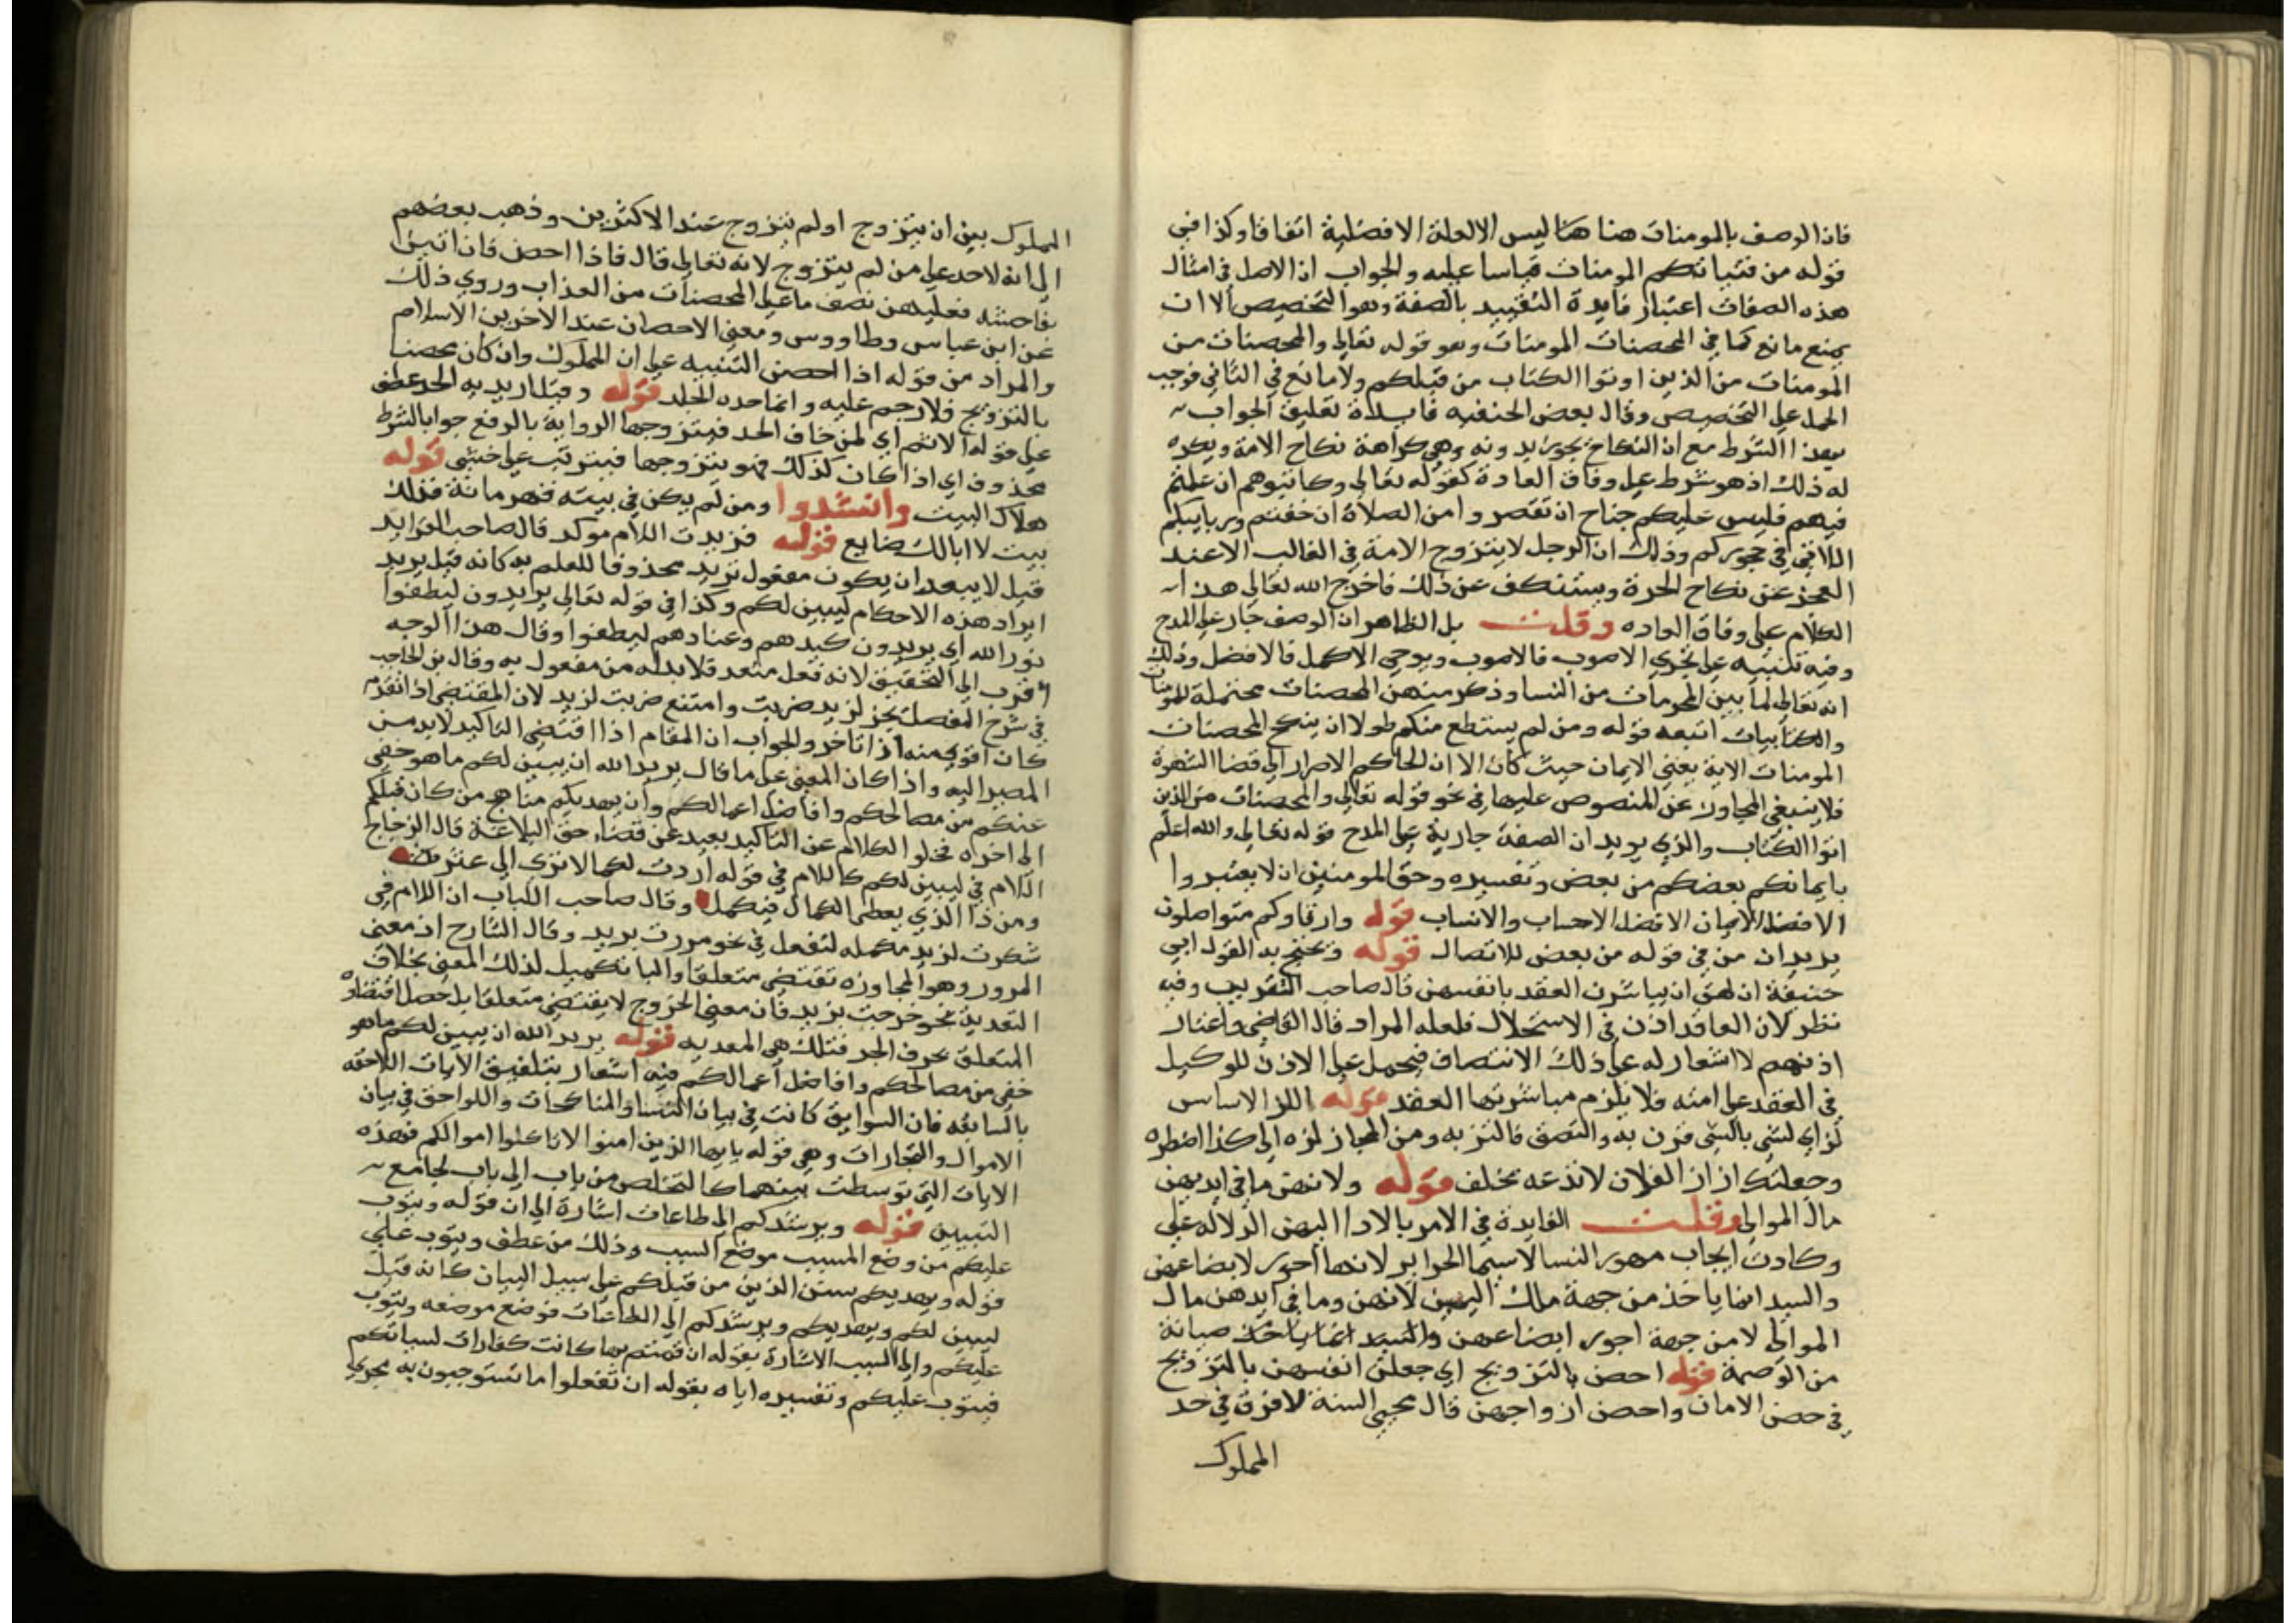 فان الوصف بالمومنات هنا هنا ليس الا لعلة الافضلية اتفاقا وكذا في
قوله من فتياتكم المومنات قياسا عليه والجواب ان الاصل في امثال
هذه الصفات اعتبار فايدة التقييد بالصفة وهو التخصيص الا ان
يمنع مانع كما في المحصنات المومنات وهو قوله تعالى والمحصنات من
المومنات من الذين اوتوا الكتاب من قبلكم ولا مانع في الثاني فوجب
الحمل على التخصيص وقال بعض الحنفيه فايدة تعليق الجواب
بهذا الشرط مع ان النكاح يجوز بدونه وهي كراهة نكاح الامة ويكره
له ذلك اذ هو شرط على وفاق العادة كقوله تعالى وكاتبوهم ان علمتم
فيهم فليس عليكم جناح ان تقصروا من الصلاة ان خفتم وربايبكم
اللاتي في حجوركم وذلك ان الرجل لا يتزوج الامة في الغالب الا عند
العجز عن نكاح الحرة ويستنكف عن ذلك فاخرج الله تعالى هذا
الكلام على وفاق العاده وقلت بل الظاهر ان الوصف جار على المدح
وفيه تنبيه على تحري الاصوب فالاصوب وتوخي الاكمل فالافضل وذلك
انه تعالى لما بين المحرمات من النسا وذكر منهن المحصنات محتملة للمومنات
والكتابيات اتبعه قوله ومن لم يستطع منكم طولا ان ينكح المحصنات
المومنات الاية يعني الايمان حيث كان الا ان الحاكم الاصرار الى قضا الشهوة
فلا ينبغي المجاوز عن المنصوص عليها في نحو قوله تعالى والمحصنات من الذين
اتوا الكتاب والذي يريد ان الصفة جارية على المدح قوله تعالى والله اعلم
بايمانكم بعضكم من بعض وتفسيره وحق المومنين ان لا يعتبروا
الا فضل الايمان لا فضل الاحساب والانساب قوله وارقاوكم متواصلون
يريد ان من في قوله من بعض للاتصال قوله ويحتج به لقول ابي
حنيفة ان لهن ان يباشرن العقد بانفسهن قال صاحب التقريب وفيه
نظر لان العاقد اذن في الاستحلال فلعله المراد قال القاضي واعتبار
اذنهم لا اشعار له على ذلك الانتصاف فيحمل على الاذن للوكيل
في العقد على امته فلا يلزم مباشرتها العقد قوله اللز الاساس
لز اي لشي بالشي قرن به والتصق فالتز به ومن المجاز لزه الى كذا اضطره
وجعلتك لزازا لفلان لا تدعه يخلف قوله ولانهن ما في ايديهن
مال الموالي وقلت الفايدة في الامر بالاداا اليهن الدلاله على
وكادت ايجاب مهور النسا لاسيما الحراير لانها اجور لابضاعهن
والسيد انما ياخذ من جهة ملك اليمين لانهن وما في ايديهن مال
الموالي لا من جهة اجور ابضاعهن والسيد انما ياخذ صيانة
من الوصمة قوله احصن بالتزويج اي جعلن انفسهن بالتزويج
في حصن الامان واحصن ازواجهن قال محيي السنة لا فرق في حد
المملوك
المملوك بين ان يتزوج او لم يتزوج عند الاكثرين وذهب بعضهم
الى انه لا حد على من لم يتزوج لانه تعالى قال فاذا احصن فان اتين
بفاحشه فعليهن نصف ما على المحصنات من العذاب وروي ذلك
عن ابن عباس وطاووس ومعنى الاحصان عند الاخرين الاسلام
والمراد من قوله اذا احصن التنبيه على ان المملوك وان كان محصنا
بالتزويج فلا رجم عليه وانما حده الجلد قوله وقيل اريد به الحد عطف
على قوله الاثم اي لمن خاف الحد فيتزوجها الرواية بالرفع جوابا لشرط
محذوف اي اذا كان كذلك فهو يتزوجها فيترتب على خشي قوله
هلاك البيت وانشدوا ومن لم يكن في بيته قهرمانة فذلك
بيت لا ابا لك ضايع قوله فزيدت اللام موكد قال صاحب الفرايد
قيل لا يبعد ان يكون مفعول يريد محذوفا للعلم به كانه قيل يريد
ايراد هذه الاحكام ليبين لكم وكذا في قوله تعالى يريدون ليطفئوا
نور الله اي يريدون كيدهم وعنادهم ليطفئوا وقال هذا الوجه
اقرب الى التحقيق لانه فعل متعد فلا بد له من مفعول به وقال بن الحاجب
في شرح المفصل يجز لزيد ضربت وامتنع ضربت لزيد لان المقتضي اذا تقدم
كان اقوى منه اذا تاخر والجواب ان المقام اذا اقتضى التاكيد لا بد من
المصير اليه واذا كان المعنى على ما قال يريد الله ان يبين لكم ما هو خفي
عنكم من مصالحكم وافاضل اعمالكم وان يهديكم مناهج من كان قبلكم
الى اخره فخلوا الكلام عن التاكيد بعيد عن قضاء حق البلاغة قال الزجاج
اللام في ليبين لكم كاللام في قوله اردت لكيما لا ترى لي عثرة
ومن ذا الذي يعطى الكمال فيكمل وقال صاحب اللباب ان اللام في
شكرت لزيد مكمله للفعل في نحو مررت بزيد وقال الشارح ان معنى
المرور وهو المجاوزه تقتضي متعلقا والبا تكميل لذلك المعنى بخلاف
التعدية نحو خرجت بزيد فان معنى الخروج لا يقتضي متعلقا بل حصل اقتضاه
المتعلق بحرف الجر فتلك هي المعديه قوله يريد الله ان يبين لكم ما هو
خفي من مصالحكم وافاضل اعمالكم فيه اشعار بتلفيق الايات اللاحقه
بالسابقه فان السوابق كانت في بيان النسا والمناكحات واللواحق في بيان
الاموال والتجارات وهي قوله يايها الذين امنوا لا تاكلوا اموالكم فهذه
الايات التي توسطت بينهما كالتخلص من باب الى باب لجامع
التبيين قوله ويرشدكم الى طاعات اشارة الى ان قوله ويتوب
عليكم من وضع المسبب موضع السبب وذلك من عطف ويتوب على
قوله ويهديكم سنن الذين من قبلكم على سبيل البيان كانه قيل
ليبين لكم ويهديكم ويرشدكم الى الطاعات فوضع موضعه ويتوب
عليكم والى السبب الاشارة بقوله ان قمتم بها كانت كفارات لسياتكم
فيتوب عليكم وتفسيره اياه بقوله ان تفعلوا ما تستوجبون به يجري